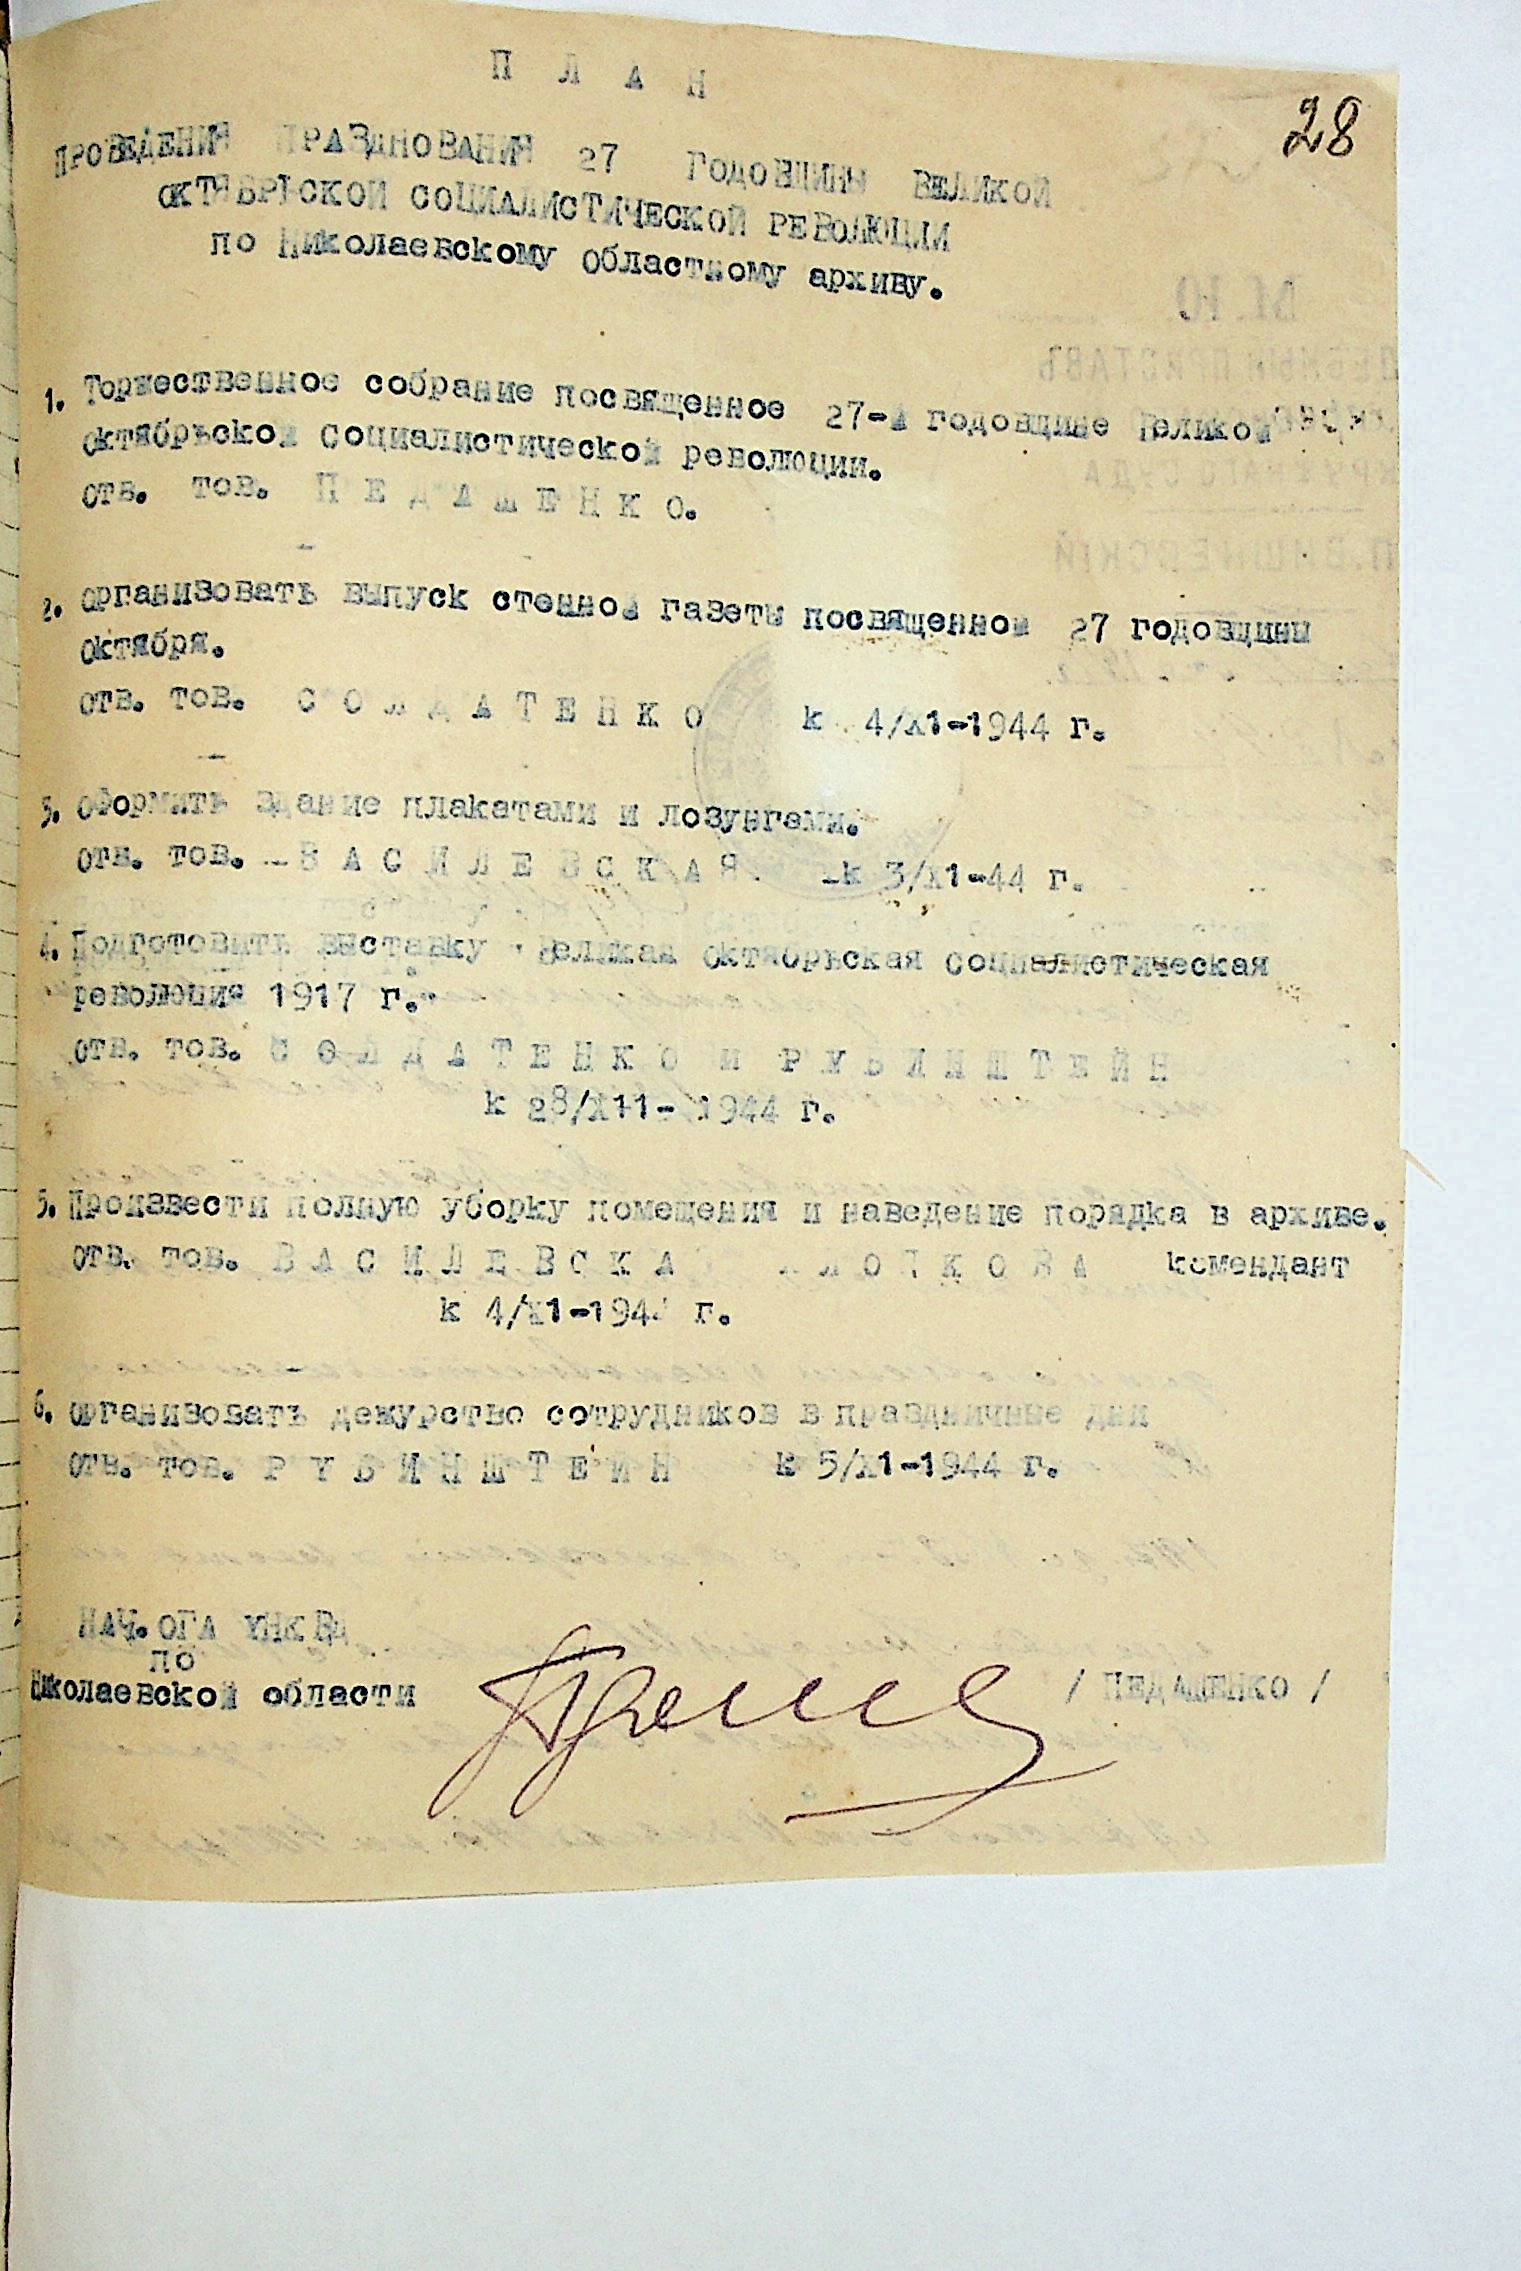 28
П Л А Н
ПРОВЕДЕНИЯ ПРАЗДНОВАНИЯ 27 ГОДОВЩИНЫ ВЕЛИКОЙ
ОКТЯБРЬСКОЙ СОЦИАЛИСТИЧЕСКОЙ РЕВОЛЮЦИИ
по Николаевскому Областному архиву.
1. Торжественное собрание посвященное 27-й годовщине Великой
Октябрьской Социалистической революции.
Отв. тов. П Е Д А Ш Е Н К О.
2. Организовать выпуск стенной газеты посвященной 27 годовщины
Октября.
Отв. тов. С О Л Д А Т Е Н К О к 4/Х1-1944 г.
3. Оформить здание плакатами и лозунгами.
Отв. тов. В А С И Л Е В С К А Я к 3/Х1-44 г.
4. Подготовить выставку "Великая Октябрьская Социалистическая
революция 1917 г."
Отв. тов. С О Л Д А Т Е Н К О и Р У Б И Н Ш Т Е Й Н
к 28/Х11-1944 г.
5. Произвести полную уборку помещения и наведение порядка в архиве.
Отв. тов. В А С И Л Е В С К А комендант
к 4/Х1-194 г.
6. Организовать дежурство сотрудников в праздничные дни
Отв. тов. Р У Б И Н Ш Т Е Й Н к 5/Х1-1944 г.
НАЧ. ОГА УНКВД
по
Николаевской области / ПЕДАШЕНКО /